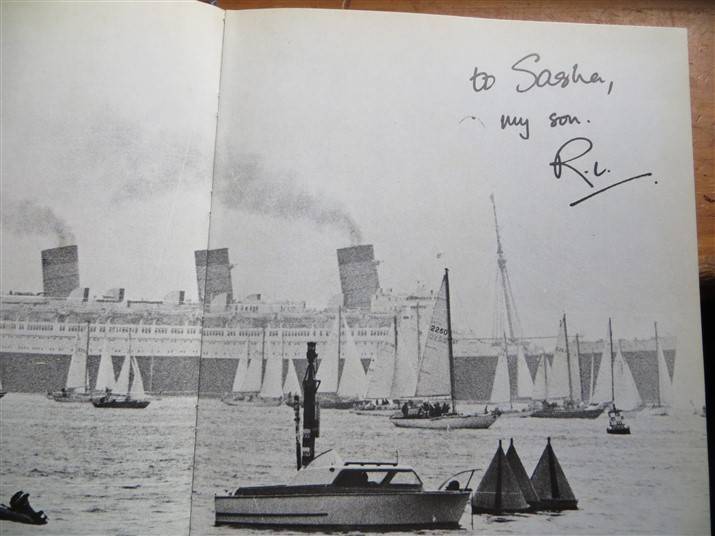 to Sasha,
my son.
R.L.
2250